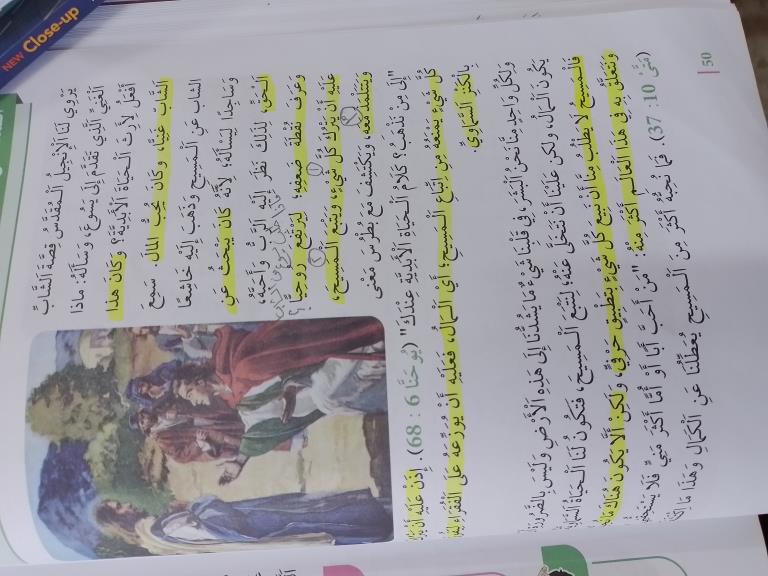 يَرْوِي لَنَا الْإِنْجِيلُ الْمُقَدَّسُ قِصَّةَ الشَّابِّ
الْغَنِيِّ الَّذِي تَقَدَّمَ إِلَى يَسُوعَ، وَسَأَلَهُ: مَاذَا
أَفْعَلُ لِأَرِثَ الْحَيَاةَ الْأَبَدِيَّةَ؟ وَكَانَ هَذَا
الشَّابُّ غَنِيًّا، وَكَانَ يُحِبُّ الْمَالَ. سَمِعَ
الشاب عَنِ الْمَسِيحِ وَذَهَبَ إِلَيْهِ خَاشِعًا
وَسَاجِدًا لِيَسْأَلَهُ؛ لِأَنَّهُ كَانَ يَبْحَثُ عَنِ
الْحَقِّ، لِذَلِكَ نَظَرَ إِلَيْهِ الرَّبُّ وَأَحَبَّهُ،
وَعَرَفَ نُقْطَةَ ضَعْفِهِ؛ لِيَرْتَفِعَ رُوحِيًّا؟
عَلَيْهِ أَنْ يَتْرُكَ كُلَّ شَيْءٍ، وَيَتْبَعَ الْمَسِيحَ،
وَيَتَتَلْمَذَ مَعَهُ، وَيَكْتَشِفَ مَعَ بُطْرُسَ مَعْنَى
"إِلَى مَنْ نَذْهَبُ؟ كَلَامُ الْحَيَاةِ الْأَبَدِيَّةِ عِنْدَكَ" (يُوحَنَّا 6 : 68). إِذَنْ عَلَيْهِ أَنْ
كُلَّ شَيْءٍ يَمْنَعُهُ مِنِ اتِّبَاعِ الْمَسِيحِ، أَيِ الْمَالُ، فَعَلَيْهِ أَنْ يُوَزِّعَهُ عَلَى الْفُقَرَاءِ
بِالْكَنْزِ السَّمَاوِيِّ.
وَلِكُلِّ وَاحِدٍ مِنَّا نَحْنُ الْبَشَرَ، فِي قَلْبِنَا شَيْءٌ مَا يَشُدُّنَا إِلَى هَذِهِ الْأَرْضِ وَلَيْسَ بِالضَّرُورَةِ
يَكُونُ الْمَالَ، وَلَكِنْ عَلَيْنَا أَنْ نَتَخَلَّى عَنْهُ؛ لِنَتْبَعَ الْمَسِيحَ، فَتَكُونُ لَنَا الْحَيَاةُ
فَالْمَسِيحُ لَا يَطْلُبُ مِنَّا أَنْ نَبِيعَ كُلَّ شَيْءٍ بِتَطْبِيقٍ حَرْفِيٍّ، وَلَكِنْ أَلَّا يَكُونَ هُنَاكَ مَا
وَنَتَعَلَّقُ بِهِ فِي هَذَا الْعَالَمِ أَكْثَرَ مِنْهُ: "مَنْ أَحَبَّ أَبًا أَوْ أُمًّا أَكْثَرَ مِنِّي فَلَا
(مَتَّى 10 : 37). فَمَا نُحِبُّهُ أَكْثَرَ مِنَ الْمَسِيحِ يُعَطِّلُنَا عَنِ الْكَمَالِ وَهَذَا مَا
50
NEW Close-up